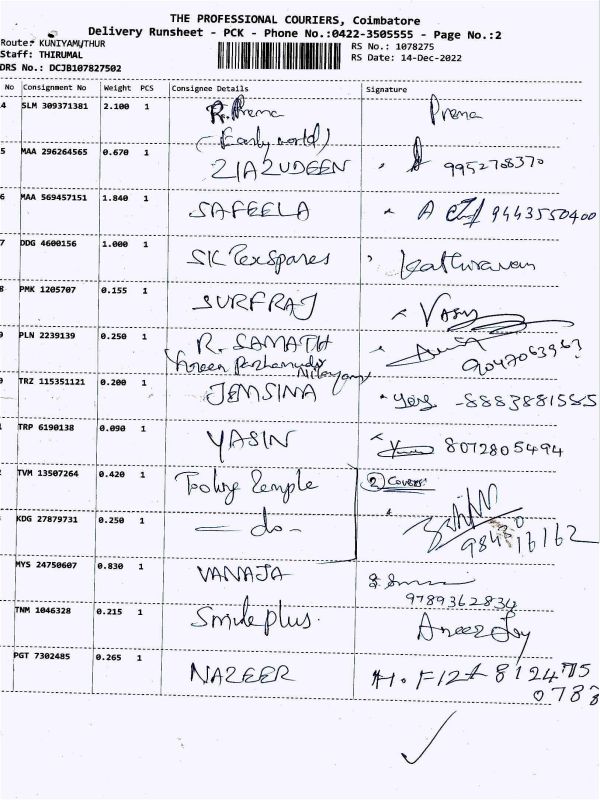 THE PROFESSIONAL COURIERS, Coimbatore
Delivery Runsheet - PCK - Phone No.:0422-3505555 - Page No.:2
Route: KUNIYAMUTHUR
Staff: THIRUMAL
DRS No.: DCJB107827502
RS No.: 1078275
RS Date: 14-Dec-2022
No Consignment No Weight PCS Consignee Details Signature
4 SLM 309371381 2.100 1 R. Prema Prema
(Early world)
5 MAA 296264565 0.670 1 ZIAZUDEEN 9952708370
6 MAA 569457151 1.840 1 SAFEELA 9443550400
7 DDG 4600156 1.000 1 SK Tex Spares Kathiravan
8 PMK 1205707 0.155 1 SURFRAJ Vasu
9 PLN 2239139 0.250 1 R. SAMATH 9047063963
Green Pazhamudir Nilayam
0 TRZ 115351121 0.200 1 JEMSINA 8883881585
TRP 6190138 0.090 1 YASIN 8072805494
TVM 13507264 0.420 1 Tooling Temple 2 Covers
KDG 27879731 0.250 1 - do - 98430 16162
MYS 24750607 0.830 1 VANAJA
9789362834
TNM 1046328 0.215 1 Smile plus.
PGT 7302485 0.265 1 NAZEER 8124
0788